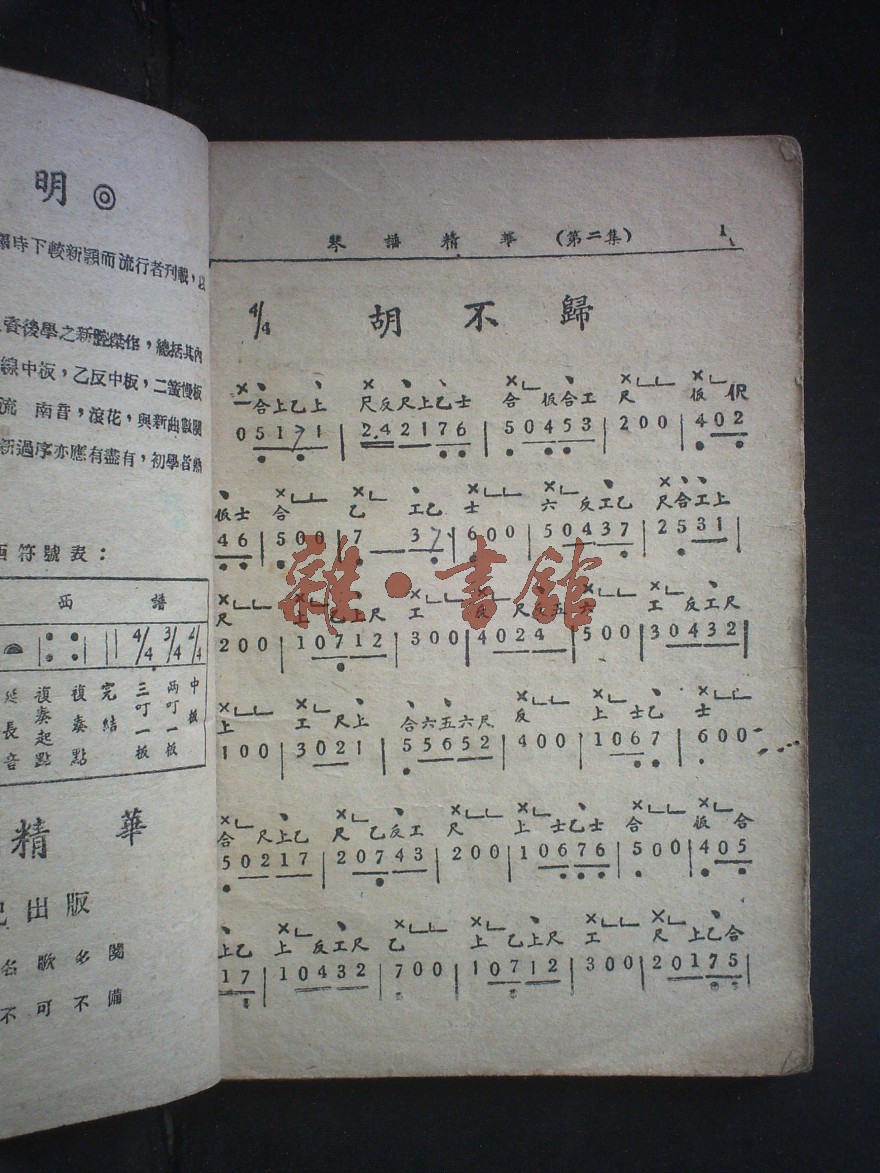 明◎
時下較新穎而流行者刊載，以
資後學之新腔傑作，總括其內
線中板，乙反中板，二簧慢板
流　南音，滾花，與新曲數闋
新過序亦應有盡有，初學皆熱
西符號表：
西　譜
4/4 3/4 2/4
延長音 複奏起點 複奏點 完結 三叮一板 兩叮一板 中板
精華
出版
名歌多闋
不可不備
琴譜精華（第二集） 1
4/4 胡不歸
一合上乙上 尺反尺上乙士 合 仮合工 尺 仮 伬
0 5 1 7 1 | 2.4 2 1 7 6 | 5 0 4 5 3 | 2 0 0 | 4 0 2
仮士 合 乙 工乙 士 六 反工乙 尺合工上
4 6 | 5 0 0 | 7 3 7 | 6 0 0 | 5 0 4 3 7 | 2 5 3 1 |
尺 上 乙上尺 工 反 尺反五六 工 反工尺
2 0 0 | 1 0 7 1 2 | 3 0 0 | 4 0 2 4 | 5 0 0 | 3 0 4 3 2 |
上 工 尺上 合六五六尺 反 上 士乙 士
1 0 0 | 3 0 2 1 | 5 5 6 5 2 | 4 0 0 | 1 0 6 7 | 6 0 0
合 尺上乙 尺 乙反工 尺 上 士乙士 合 仮 合
5 0 2 1 7 | 2 0 7 4 3 | 2 0 0 | 1 0 6 7 6 | 5 0 0 | 4 0 5
上乙 上 反工尺 乙 上 乙上尺 工 尺 上乙合
1 7 | 1 0 4 3 2 | 7 0 0 | 1 0 7 1 2 | 3 0 0 | 2 0 1 7 5 |
雜·書館